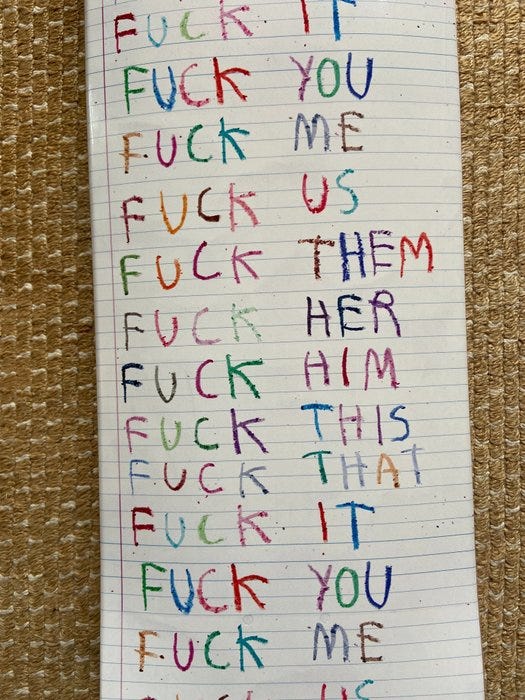 FUCK IT
FUCK YOU
FUCK ME
FUCK US
FUCK THEM
FUCK HER
FUCK HIM
FUCK THIS
FUCK THAT
FUCK IT
FUCK YOU
FUCK ME
US